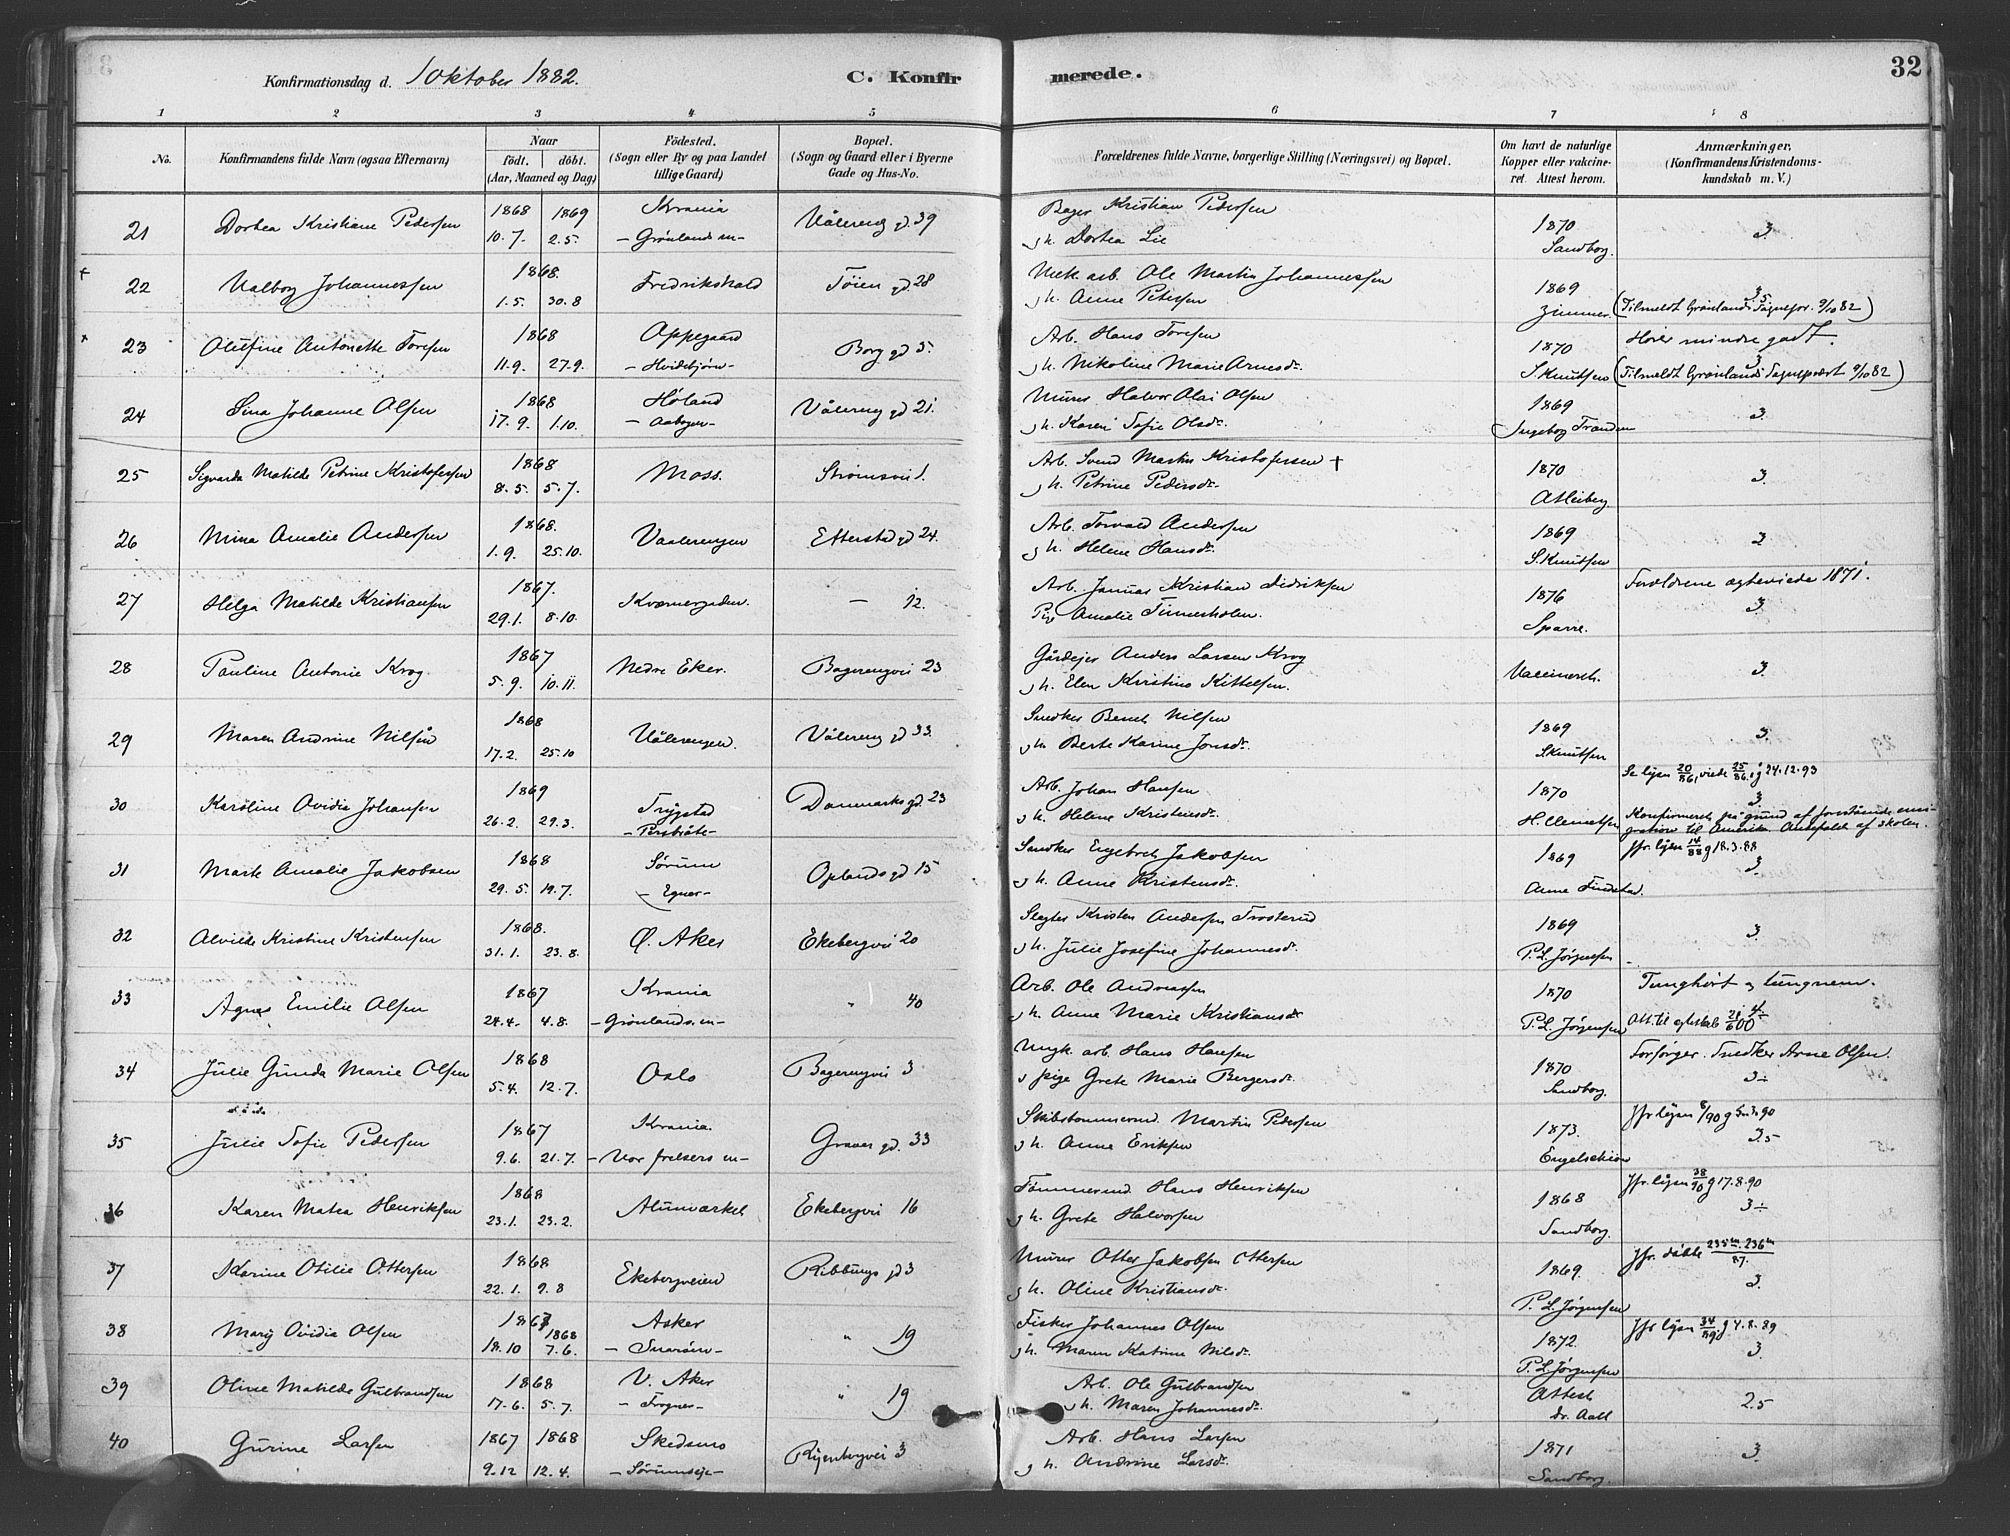 Konfirmationsdag d. 1 Oktober 1882. C. Konfirmerede. 32
1 2 3 4 5 6 7 8
No. Konfirmandens fulde Navn (ogsaa Efternavn) Naar født. døbt. (Aar, Maaned og Dag) Födested. (Sogn eller By og paa Landet tillige Gaard) Bopæl. (Sogn og Gaard eller i Byerne Gade og Hus-No. Forældrenes fulde Navne, borgerlige Stilling (Næringsvei) og Bopæl. Om havt de naturlige Kopper eller vakcineret. Attest herom. Anmærkninger. (Konfirmandens Kristendomskundskab m. V.)
21 Dortea Kristiane Pedersen 1868 10.7. 1869 2.5. Krania - Grønlands m- Vålereng gd 39 Bager Kristian Pedersen g h. Dortea Lie 1870 Sandborg. 3.
+ 22 Valborg Johannessen 1868. 1.5. 30.8 Fredrikshald Tøien gd. 28 Mek. arb. Ole Martin Johannessen g h. Anne Petersen 1869 Zimmer. 3.5 (Tilmeldt Grønlands Sognepr. 9/10 82)
+ 23 Olufine Antonette Toresen 1868 11.9. 27.9. Oppegaard - Hvidebjørn- Borg gd 5. Arb. Hans Toresen g h. Nikoline Marie Arnesdr. 1870 S. Knutsen Hører mindre godt. 3 (Tilmeldt Grønlands Sognepræst 9/10 82)
24 Lina Johanne Olsen 1868 17.9. 1.10. Høland - Aabogen- Vålereng gd 21. Murer Halvor Olai Olsen g h. Karen Sofie Olsdr. 1869 Ingeborg Tranden 3.
25 Sigvarda Matilde Petrine Kristofersen 1868 8.5. 5.7. Moss. Strømsvei 1. Arb. Svend Martin Kristofersen + g h. Petrine Pedersdr. 1870 Atleiberg 3.
26 Mina Amalie Andersen 1868. 1.9. 25.10. Vaalerengen Etterstad gd 24. Arb. Torvald Andersen g h. Helene Hansdr. 1869 S. Knutsen 3
27 Helga Matilde Kristiansen 1867. 29.1. 8.10. Kværnergaden. - 12. Arb. Jannas Kristian Didriksen Pige Amalie Timmerholen. 1876 Sparre. Forældrene egteviede 1871. 3.
28 Pauline Antonie Krog. 1867 5.9. 10.11. Nedre Eker. Bagerengvei 23 Gårdejer Anders Larsen Krog g h. Elen Kristine Kittelsen. Vaccineret. 3.
29 Maren Andrine Nilsen 1868 17.2. 25.10 Vålerengen. Vålereng gd 33. Snedker Bernt Nilsen g h Berte Karine Jonsdr. 1869 S. Knutsen 3.
30 Karoline Ovidia Johansen 1869 26.2. 29.3. Trygstad - Persbråte- Danmarks gd. 23 Arb. Johan Hansen g h. Helene Kristensdr. 1870 H. Clemetsen Se lysn 20/86, viede 25/86. g 24.12.93 3. Konfirmeret på grund af forstående emigration til Amerika. Anbefalet af skolen.
31 Marte Amalie Jakobsen 1868 29.5. 19.7. Sørum - Egner- Oplands gd 15 Snedker Engebret Jakobsen g h. Anne Kristensdr. 1869 Anne Findstad. Jfr. lysn 14/88 g 18.3.88 3.
32 Alvilde Kristine Kristensen 1868. 31.1. 23.8. Ø. Aker Ekebergvei 20 Slagter Kristen Andersen Trosterud g h. Julie Josefine Johannesdr. 1869 P. L. Jørgensen 3.
33 Agnes Emilie Olsen 1867 24.4. 4.8. Krania - Grønlands. m- " 40 Arb. Ole Andreassen g h. Anne Marie Kristiansdr. 1870 P. L. Jørgensen Tunghørt og tungnem. Att. til egteskab 21/6 00 4÷
34 Julie Gunda Marie Olsen 1868 5.4. 12.7. Oslo Bagerengvei 3 Ungk. arb. Hans Hansen g pige Grete Marie Bergersdr. 1870 Sandborg. Forsørger. Snedker Arne Olsen. 3÷
35 Julie Sofie Pedersen 1867 9.6. 21.7. Krania. - Vor frelsers m- Graver gd. 33 Skibstømmermd. Martin Pedersen g h. Anne Eriksen 1873. Engelschiøn Jfr lysn 8/90 g 5.3.90 3.5
36 Karen Matea Henriksen 1868 23.1. 23.2. Alunværket Ekebergvei 16 Tømmermd. Hans Henriksen g h. Grete Halvorsen 1868 Sandborg. Jfr. lysn 38/90 g 17.8.90 3÷
37 Karine Otilie Ottersen 1868 22.1. 9.8 Ekebergveien Ribbungs gd 3 Murer Otter Jakobsen Ottersen g h. Oline Kristiansdr. 1869. P. L. Jørgensen Jfr. døbte 235m. 236m/87. 3.
38 Mary Ovidia Olsen 1867 18.10 1868 7.6. Asker - Snarøen- " 19 Fisker Johannes Olsen g h. Maren Katrine Nilsdr. 1872. P. L. Jørgensen Jfr lysn 34/89 g 4.8.89 3.
39 Oline Matilde Gulbrandsen 1868 17.6. 5.7. V. Aker - Frogner- " 19 Arb. Ole Gulbrandsen g h. Maren Johannesdr. Attest dr. Aall 2.5
40 Gurine Larsen 1867 9.12 1868 12.4. Skedsmo - Sørumseje- Ryenbergvei 3 Arb. Hans Larsen g h. Andrine Larsdr. 1871 Sandborg. 3.